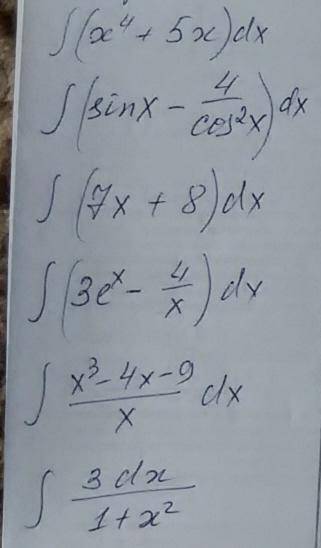 ∫(x⁴ + 5x)dx
∫(sinx − 4/cos²x)dx
∫(7x + 8)dx
∫(3eˣ − 4/x)dx
∫ (x³−4x−9)/x dx
∫ 3dx/(1+x²)